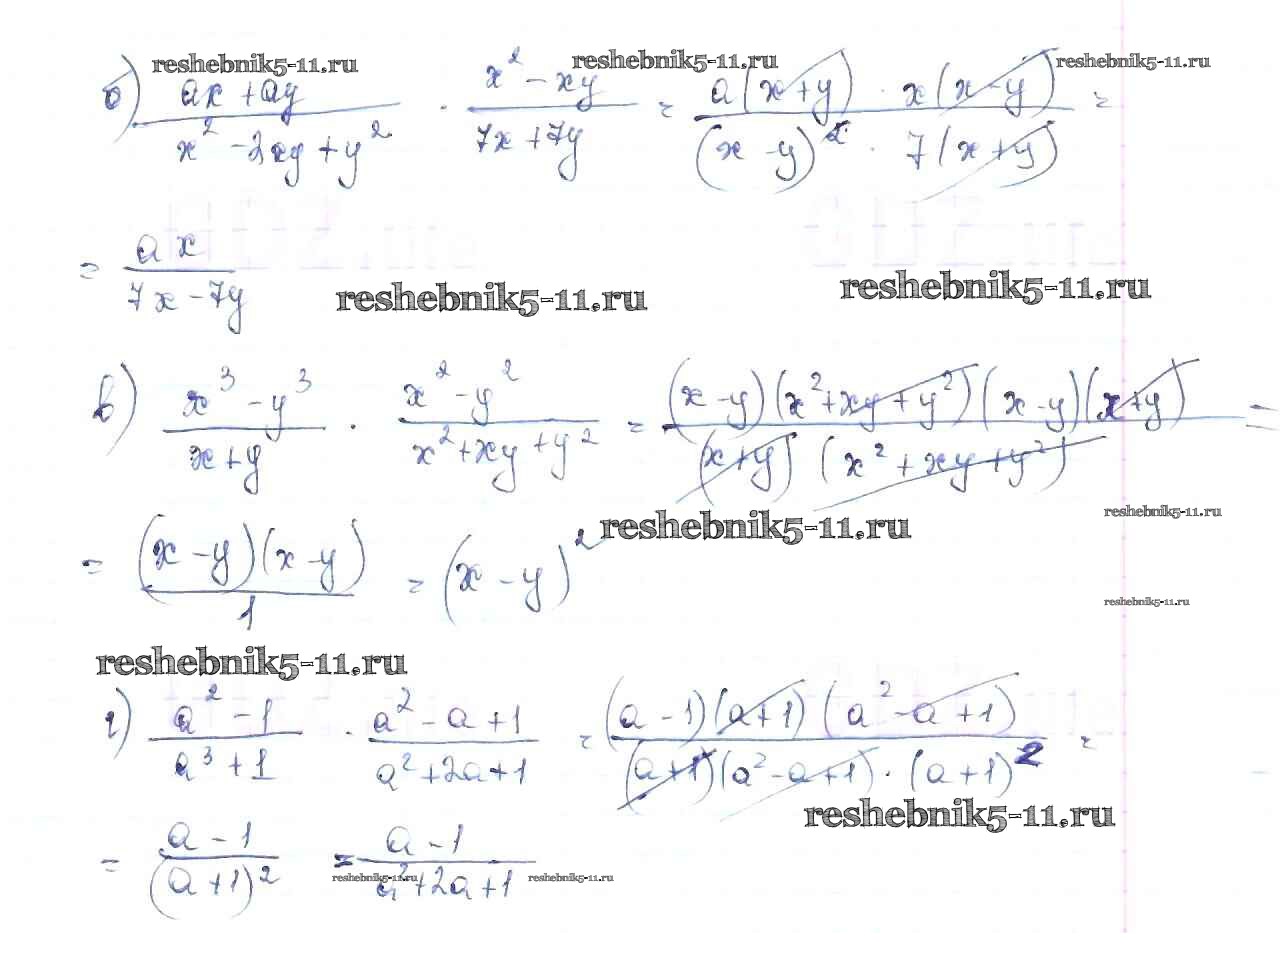 reshebnik5-11.ru reshebnik5-11.ru reshebnik5-11.ru
б) (ax + ay)/(x² - 2xy + y²) · (x² - xy)/(7x + 7y) = (a(x+y) · x(x-y))/((x-y)² · 7(x+y)) =
= (ax)/(7x - 7y)
reshebnik5-11.ru reshebnik5-11.ru
в) (x³ - y³)/(x+y) · (x² - y²)/(x² + xy + y²) = ((x-y)(x² + xy + y²)(x-y)(x+y))/((x+y)(x² + xy + y²)) =
reshebnik5-11.ru reshebnik5-11.ru
= ((x-y)(x-y))/1 = (x-y)²
reshebnik5-11.ru
reshebnik5-11.ru
г) (a² - 1)/(a³ + 1) · (a² - a + 1)/(a² + 2a + 1) = ((a-1)(a+1)(a² - a + 1))/((a+1)(a² - a + 1) · (a+1)²) =
reshebnik5-11.ru
= (a - 1)/((a+1)²) = (a - 1)/(a² + 2a + 1)
reshebnik5-11.ru reshebnik5-11.ru